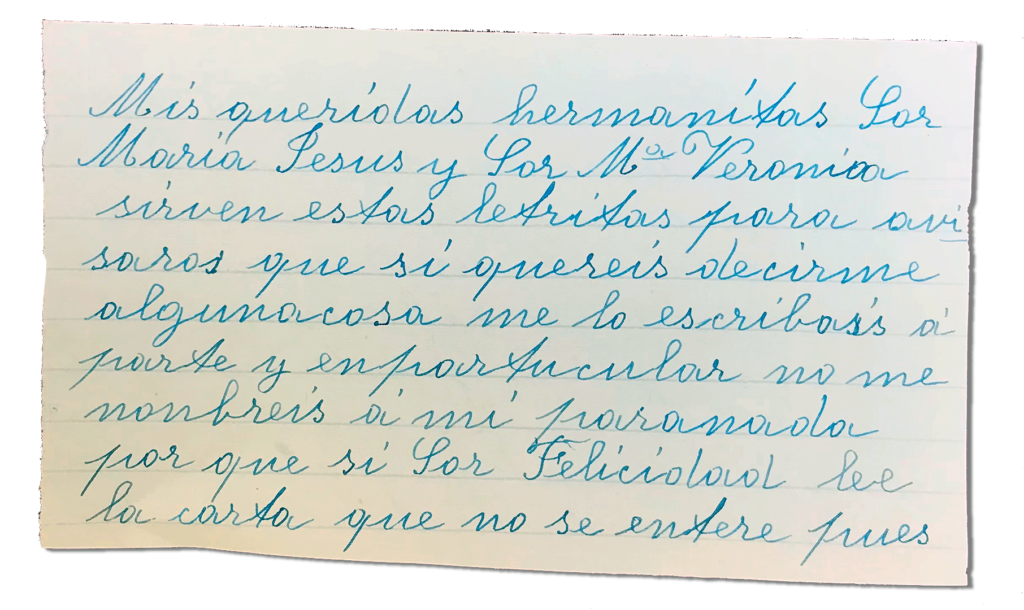 Mis queridas hermanitas Sor
Maria Jesus y Sor Mª Veronica
sirven estas letritas para avi
saros que si quereis decirme
algunacosa me lo escribais á
parte y enpartucular no me
nonbreis á mi paranada
por que si Sor Felicidad lee
la carta que no se entere pues